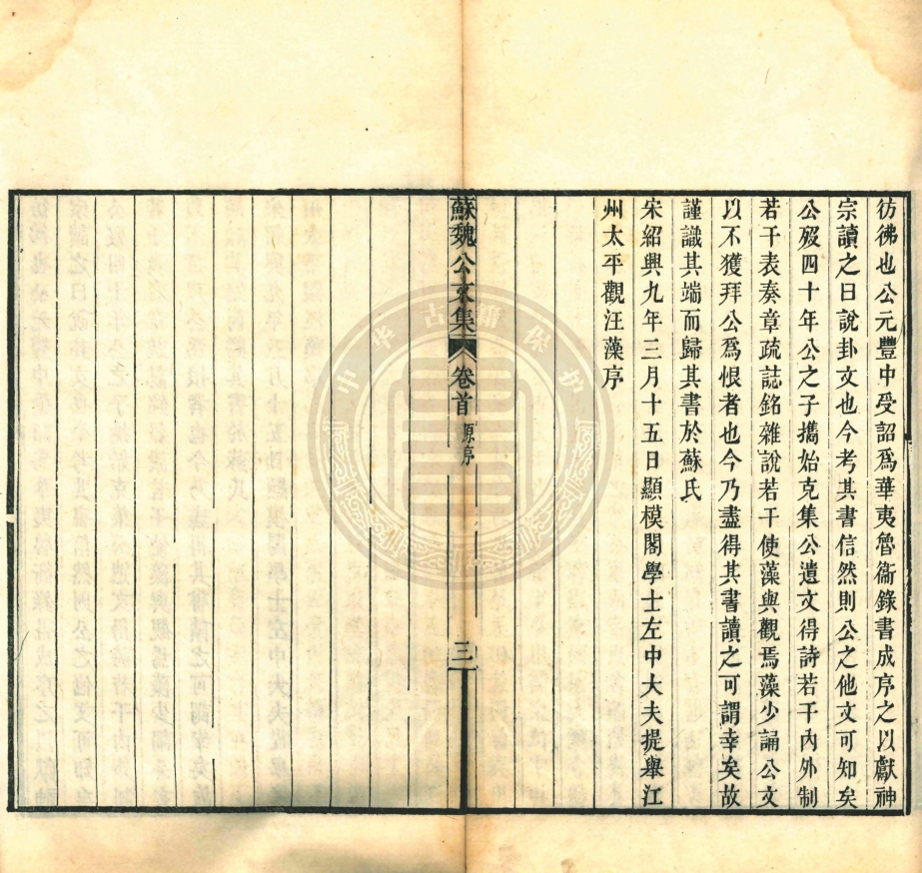 彷彿也公元豐中受詔爲華夷魯衞錄書成序之以獻神
宗讀之曰說卦文也今考其書信然則公之他文可知矣
公歿四十年公之子攜始克集公遺文得詩若干內外制
若干表奏章疏誌銘雜說若干使藻與觀焉藻少誦公文
以不獲拜公爲恨者也今乃盡得其書讀之可謂幸矣故
謹識其端而歸其書於蘇氏
宋紹興九年三月十五日顯模閣學士左中大夫提舉江
州太平觀汪藻序
蘇魏公文集 卷首 原序 三
中华古籍保护